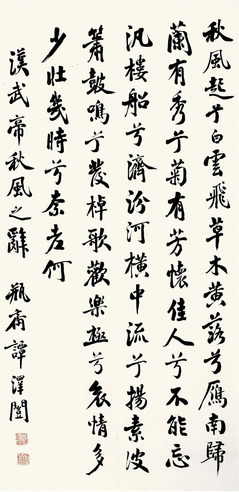 秋風起兮白雲飛草木黃落兮鴈南歸
蘭有秀兮菊有芳懷佳人兮不能忘
汎樓船兮濟汾河橫中流兮揚素波
簫鼓鳴兮發棹歌歡樂極兮哀情多
少壯幾時兮奈老何
漢武帝秋風之辭 瓶齋譚澤闓